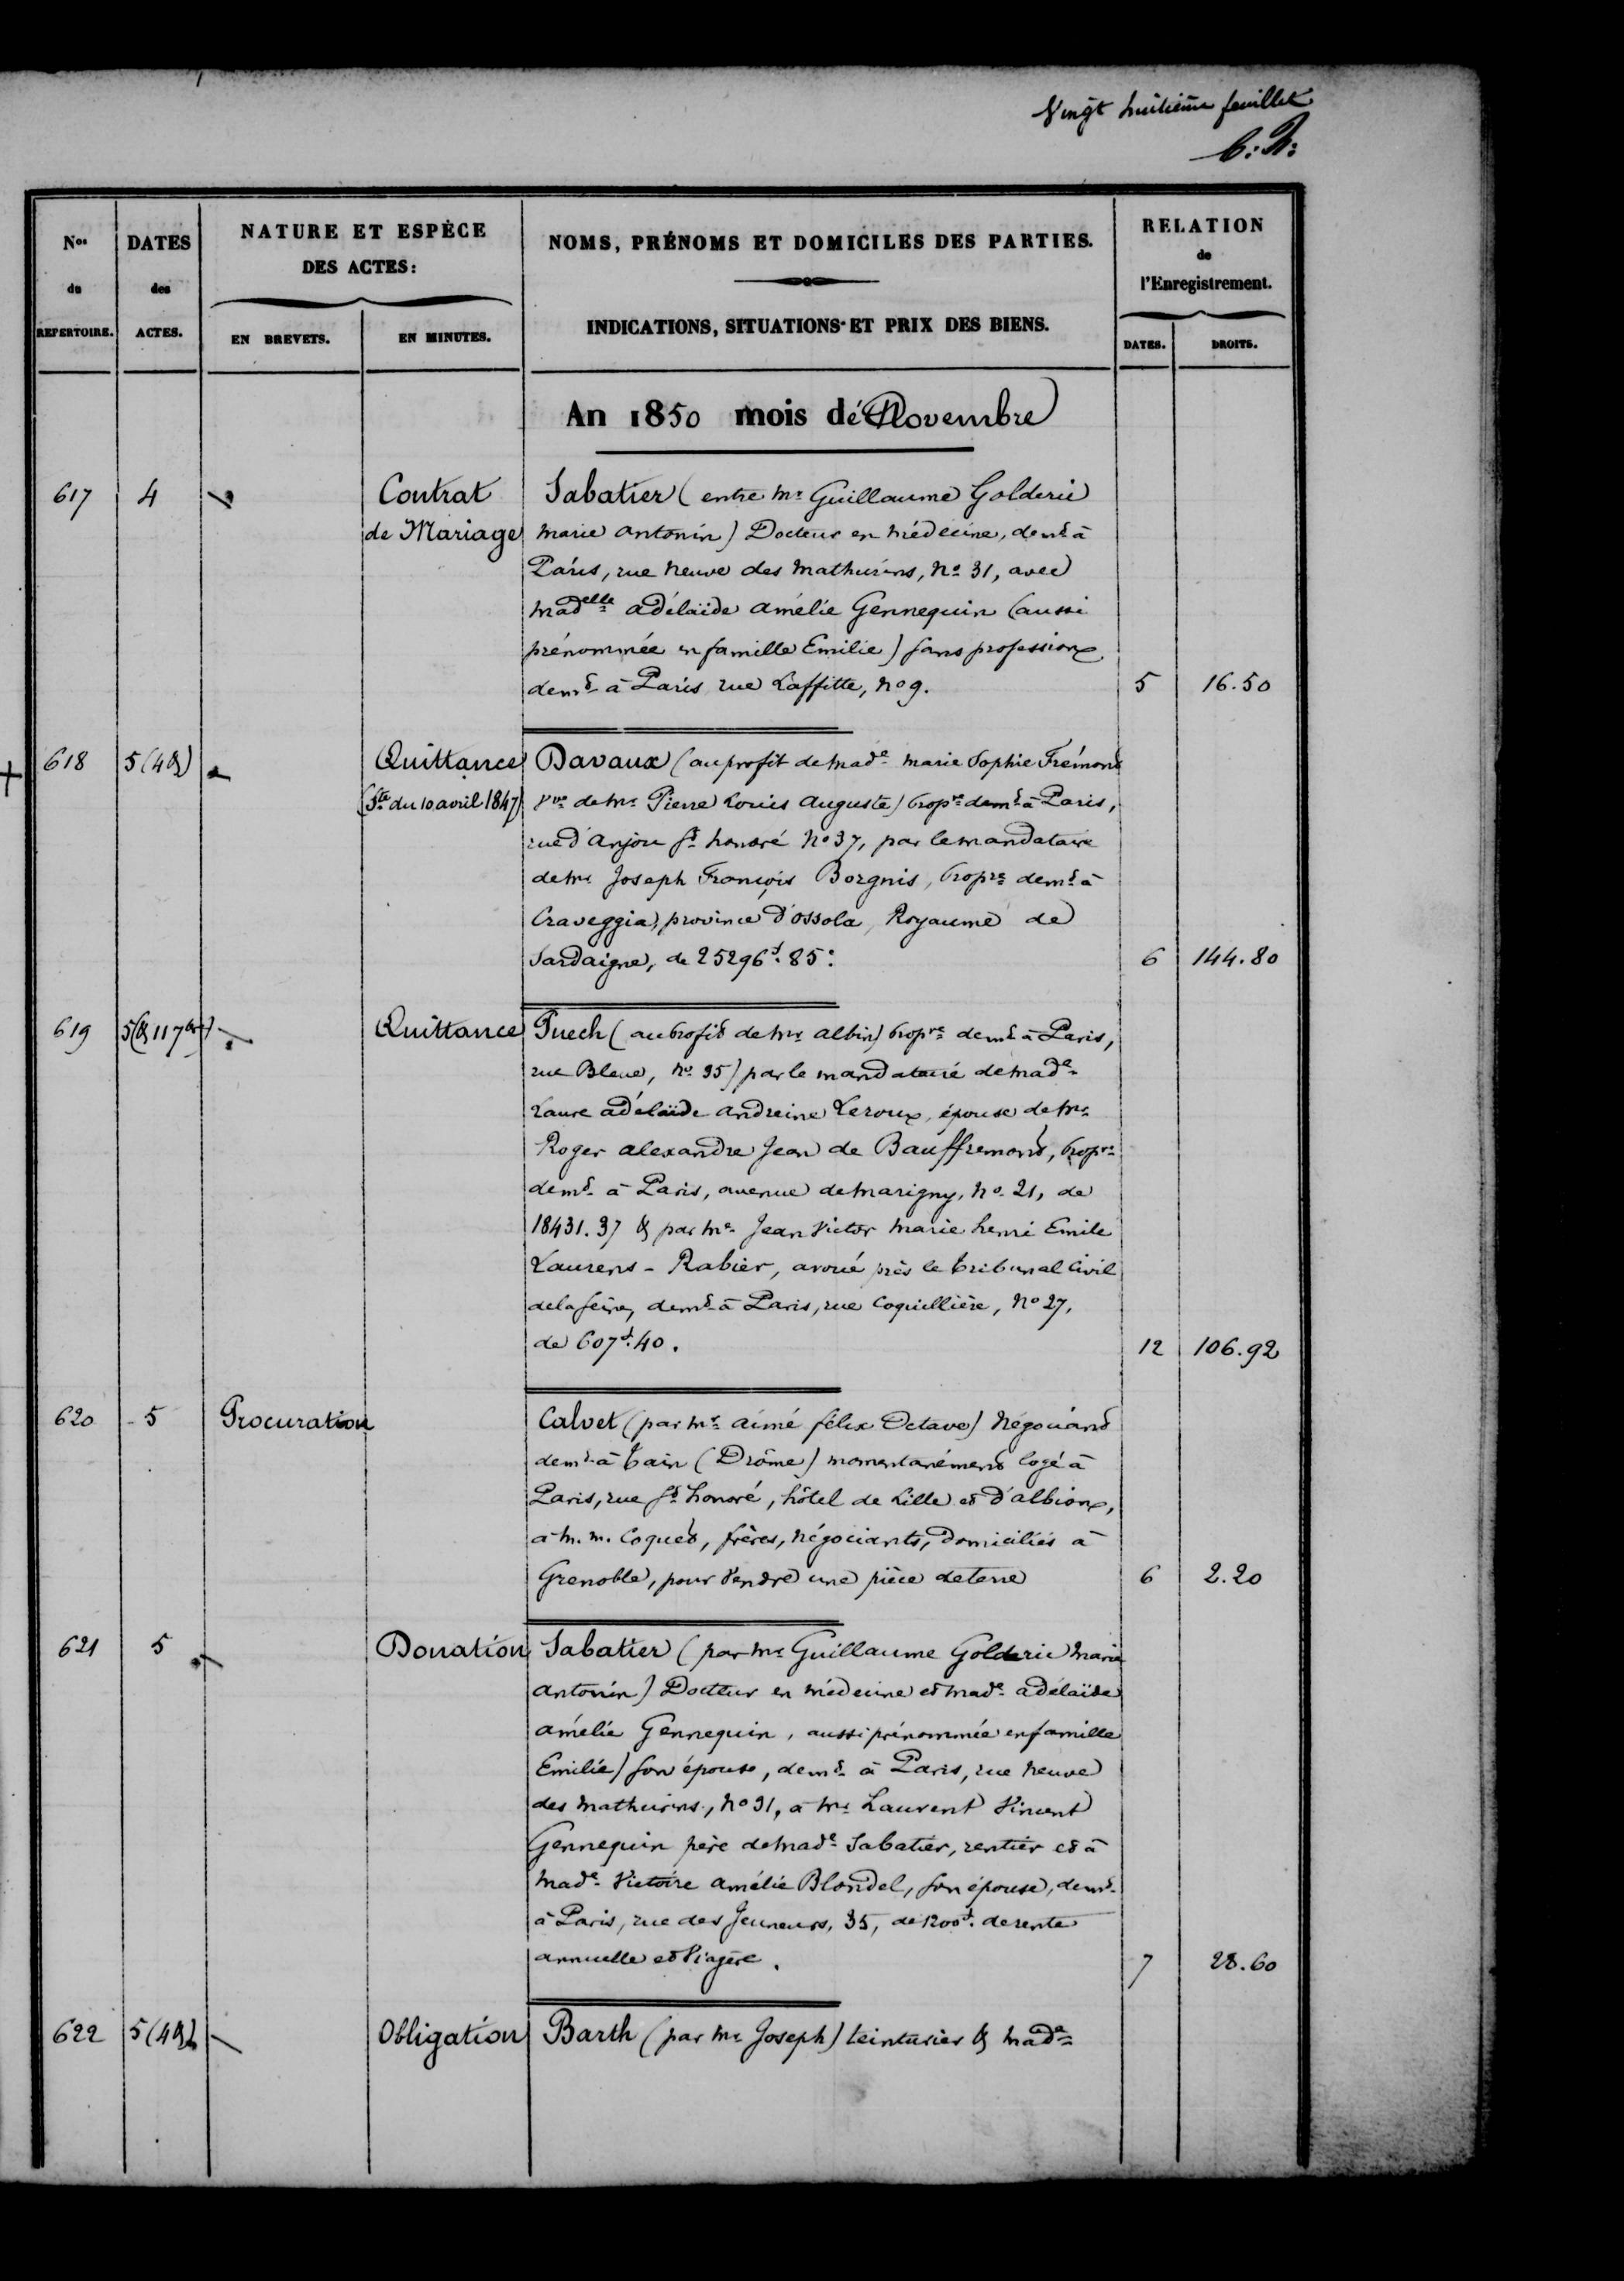 Vingt huitième feuillet
Nos du REPERTOIRE.
DATES des ACTES.
NATURE ET ESPÈCE DES ACTES:
EN BREVETS.
EN MINUTES.
NOMS, PRÉNOMS ET DOMICILES DES PARTIES.
INDICATIONS, SITUATIONS ET PRIX DES BIENS.
RELATION de l'Enregistrement.
DATES.
DROITS.
An 1850 mois de Novembre
617 4 Contrat Sabatier (entre Mr Guillaume Golderic
de Mariage Marie Antonin) Docteur en Médecine, demt à
Paris, rue Neuve des Mathurins, No 31, avec
Madelle Adélaïde Amélie Gennequin (aussi
prénommée en famille Emilie) sans profession
demt à Paris rue Laffitte, No 9. 5 16.50
618 5 (4 &) Quittance Davaux (au profit de Made Marie Sophie Frémont
(Ste du 10 avril 1847) Vve de Mr Pierre Louis Auguste) Propre demt à Paris,
rue d'Anjou St honoré No 37, par le mandataire
de Mr Joseph François Borgnis, Propre demt à
Craveggia, province d'Ossola, Royaume de
Sardaigne, de 25296f.85c 6 144.80
619 5 (& 11 7bre) Quittance Puech (au Profit de Mr Albin) Propre demt à Paris,
rue Bleue, No 35) par le mandataire de Made
Laure Adélaïde Andreine Leroux, épouse de Mr
Roger Alexandre Jean de Bauffremont, Propre
demt à Paris, avenue de Marigny, No 21, de
18431.37 & par Me Jean Victor Marie henri Emile
Laurens-Rabier, avoué près le tribunal Civil
de la Seine, demt à Paris, rue Coquillière, No 27,
de 607f.40. 12 106.92
620 5 Procuration Calvet (par Mr Aimé félix Octave) Négociant
demt à Tain (Drôme) momentanément logé à
Paris, rue St honoré, hôtel de Lille et d'Albion,
à M.M. Coquet, frères, Négociants, Domiciliés à
Grenoble, pour Vendre une pièce de terre 6 2.20
621 5 Donation Sabatier (par Mr Guillaume Golderic Marie
Antonin) Docteur en Médecine et Made Adélaïde
Amélie Gennequin, aussi prénommée en famille
Emilie) son épouse, demt à Paris, rue Neuve
des Mathurins, No 31, à Mr Laurent Vincent
Gennequin père de Made Sabatier, rentier et à
Made Victoire Amélie Blondel, son épouse, demt
à Paris, rue des Jeuneurs, 35, de 1200f. de rente
annuelle et Viagère. 7 28.60
622 5 (4 &) Obligation Barth (par Mr Joseph) teinturier & Made